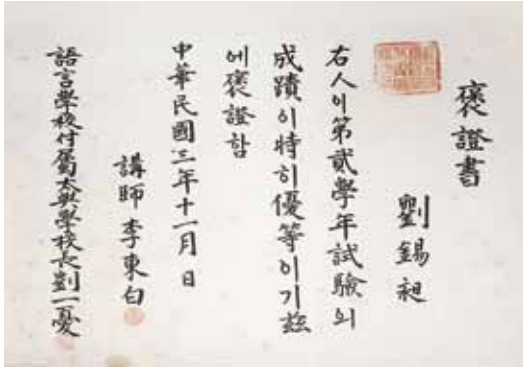 褒證書
劉錫昶
右人이第貳學年試驗의
成蹟이特히優等이기玆
에褒證함
中華民國三年十一月 日
講師 李東白
語言學校付屬 學校長劉一憂